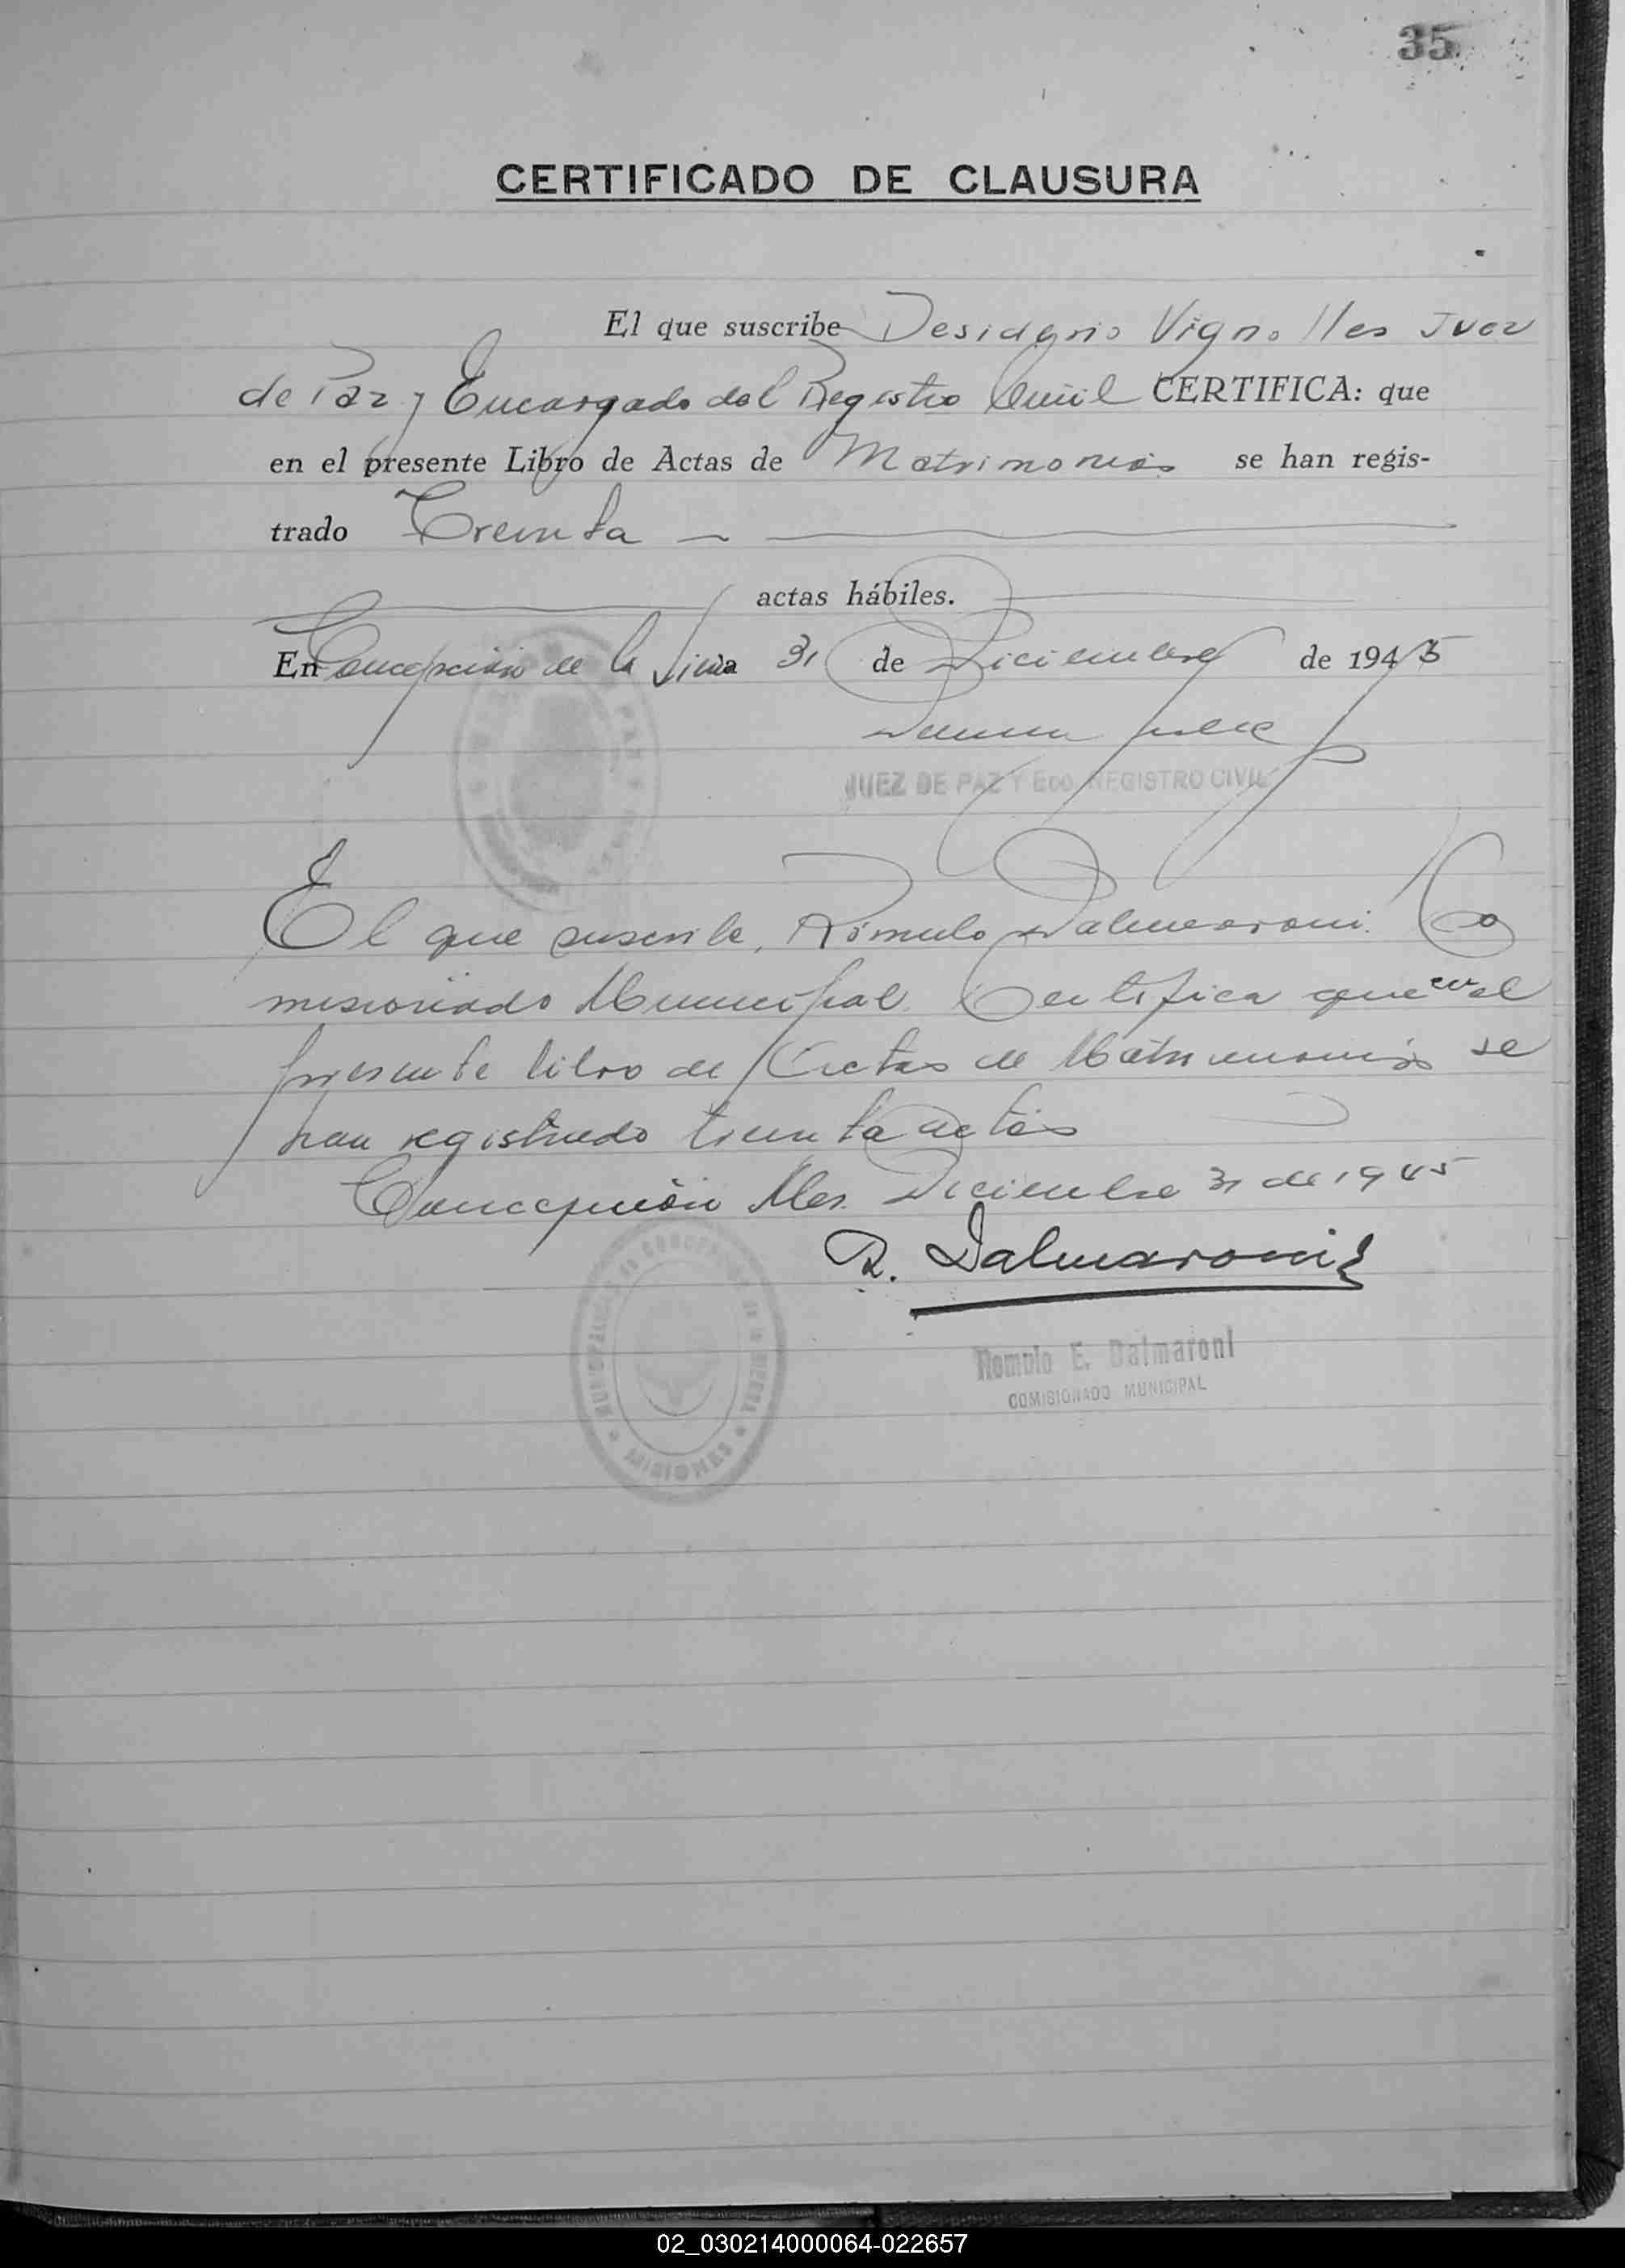 35
CERTIFICADO DE CLAUSURA
El que suscribe Desiderio Vignolles Juez
de Paz y Encargado del Registro Civil CERTIFICA: que
en el presente Libro de Actas de Matrimonios se han regis-
trado Treinta
actas hábiles.
En Concepción de la Sierra 31 de Diciembre de 1945
JUEZ DE PAZ Y Edo. REGISTRO CIVIL
El que suscribe, Rómulo Dalmaroni. Co
misionado Municipal. Certifica que en el
presente libro de Actas de Matrimonios se
han registrado treinta actas
Concepción Mes. Diciembre 31 de 1945
R. Dalmaroni
Romulo E. Dalmaroni
COMISIONADO MUNICIPAL
MUNICIPALIDAD de CONCEPCION de la SIERRA
MISIONES
02_030214000064-022657